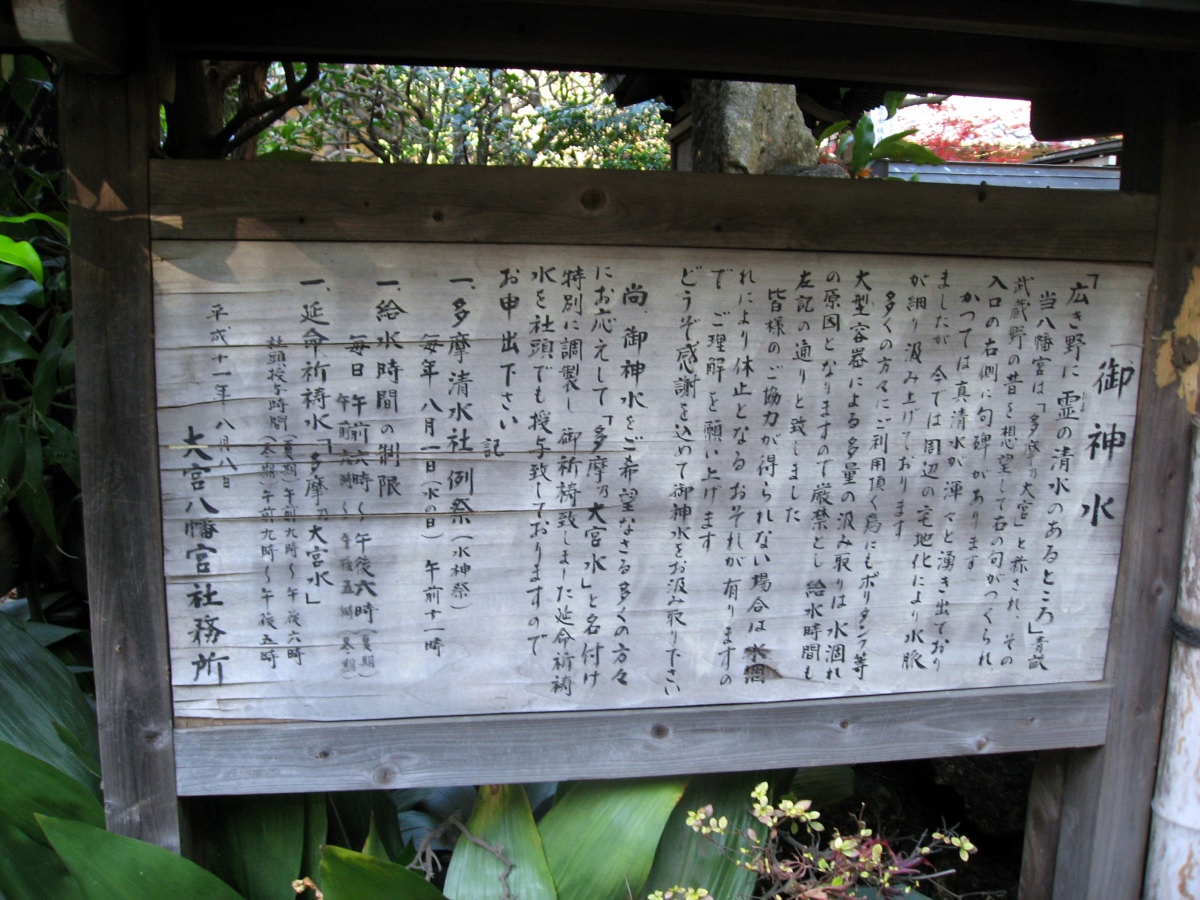 御神水
「広き野に 霊の清水のあるところ」青畝
当八幡宮は「多摩の大宮」と称され、その
武蔵野の昔を想望して右の句がつくられ
入口の右側に句碑があります
かつては真清水が渾々と湧き出ており
ましたが 今では周辺の宅地化により水脈
が細り汲み上げております
多くの方々にご利用頂く為にもポリタンク等
大型容器による多量の汲み取りは水涸れ
の原因となりますので厳禁とし 給水時間も
左記の通りと致しました
皆様のご協力が得られない場合は水涸
れにより休止となるおそれが有りますの
で ご理解を願い上げます
どうぞ感謝を込めて御神水をお汲み取り下さい
尚、御神水をご希望なさる多くの方々
にお応えして「多摩乃大宮水」と名付け
特別に調製し 御祈祷致しました延命祈祷
水を社頭でも授与致しておりますので
お申出下さい
記
一、多摩清水社例祭(水神祭)
毎年 八月一日(水の日) 午前十一時
一、給水時間の制限
毎日 午前六時〜午後六時(夏期)
午前九時〜午後五時(冬期)
一、延命祈祷水「多摩乃大宮水」
社頭授与時間 (夏期)午前九時〜午後六時
(冬期)午前九時〜午後五時
平成十一年八月八日
大宮八幡宮社務所